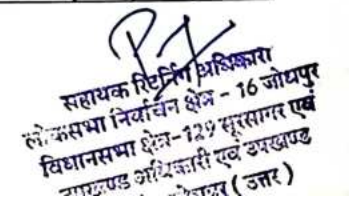 सहायक रिटर्निंग अधिकारी
लोकसभा निर्वाचन क्षेत्र - 16 जोधपुर
विधानसभा क्षेत्र-129 सूरसागर एवं
उपखण्ड अधिकारी एवं उपखण्ड
( उत्तर )